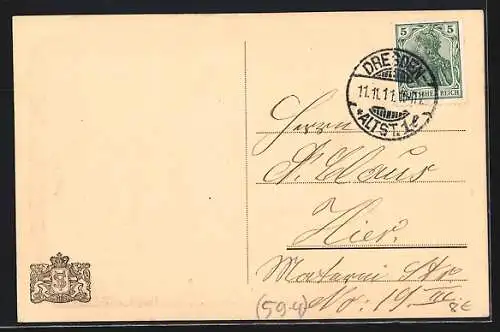 5 5
DEUTSCHES REICH
DRESDEN
11.11.11.
*ALTST.1e
Herrn
Haus
Hier.
Materni Str
No: 19 III
(594)
8€